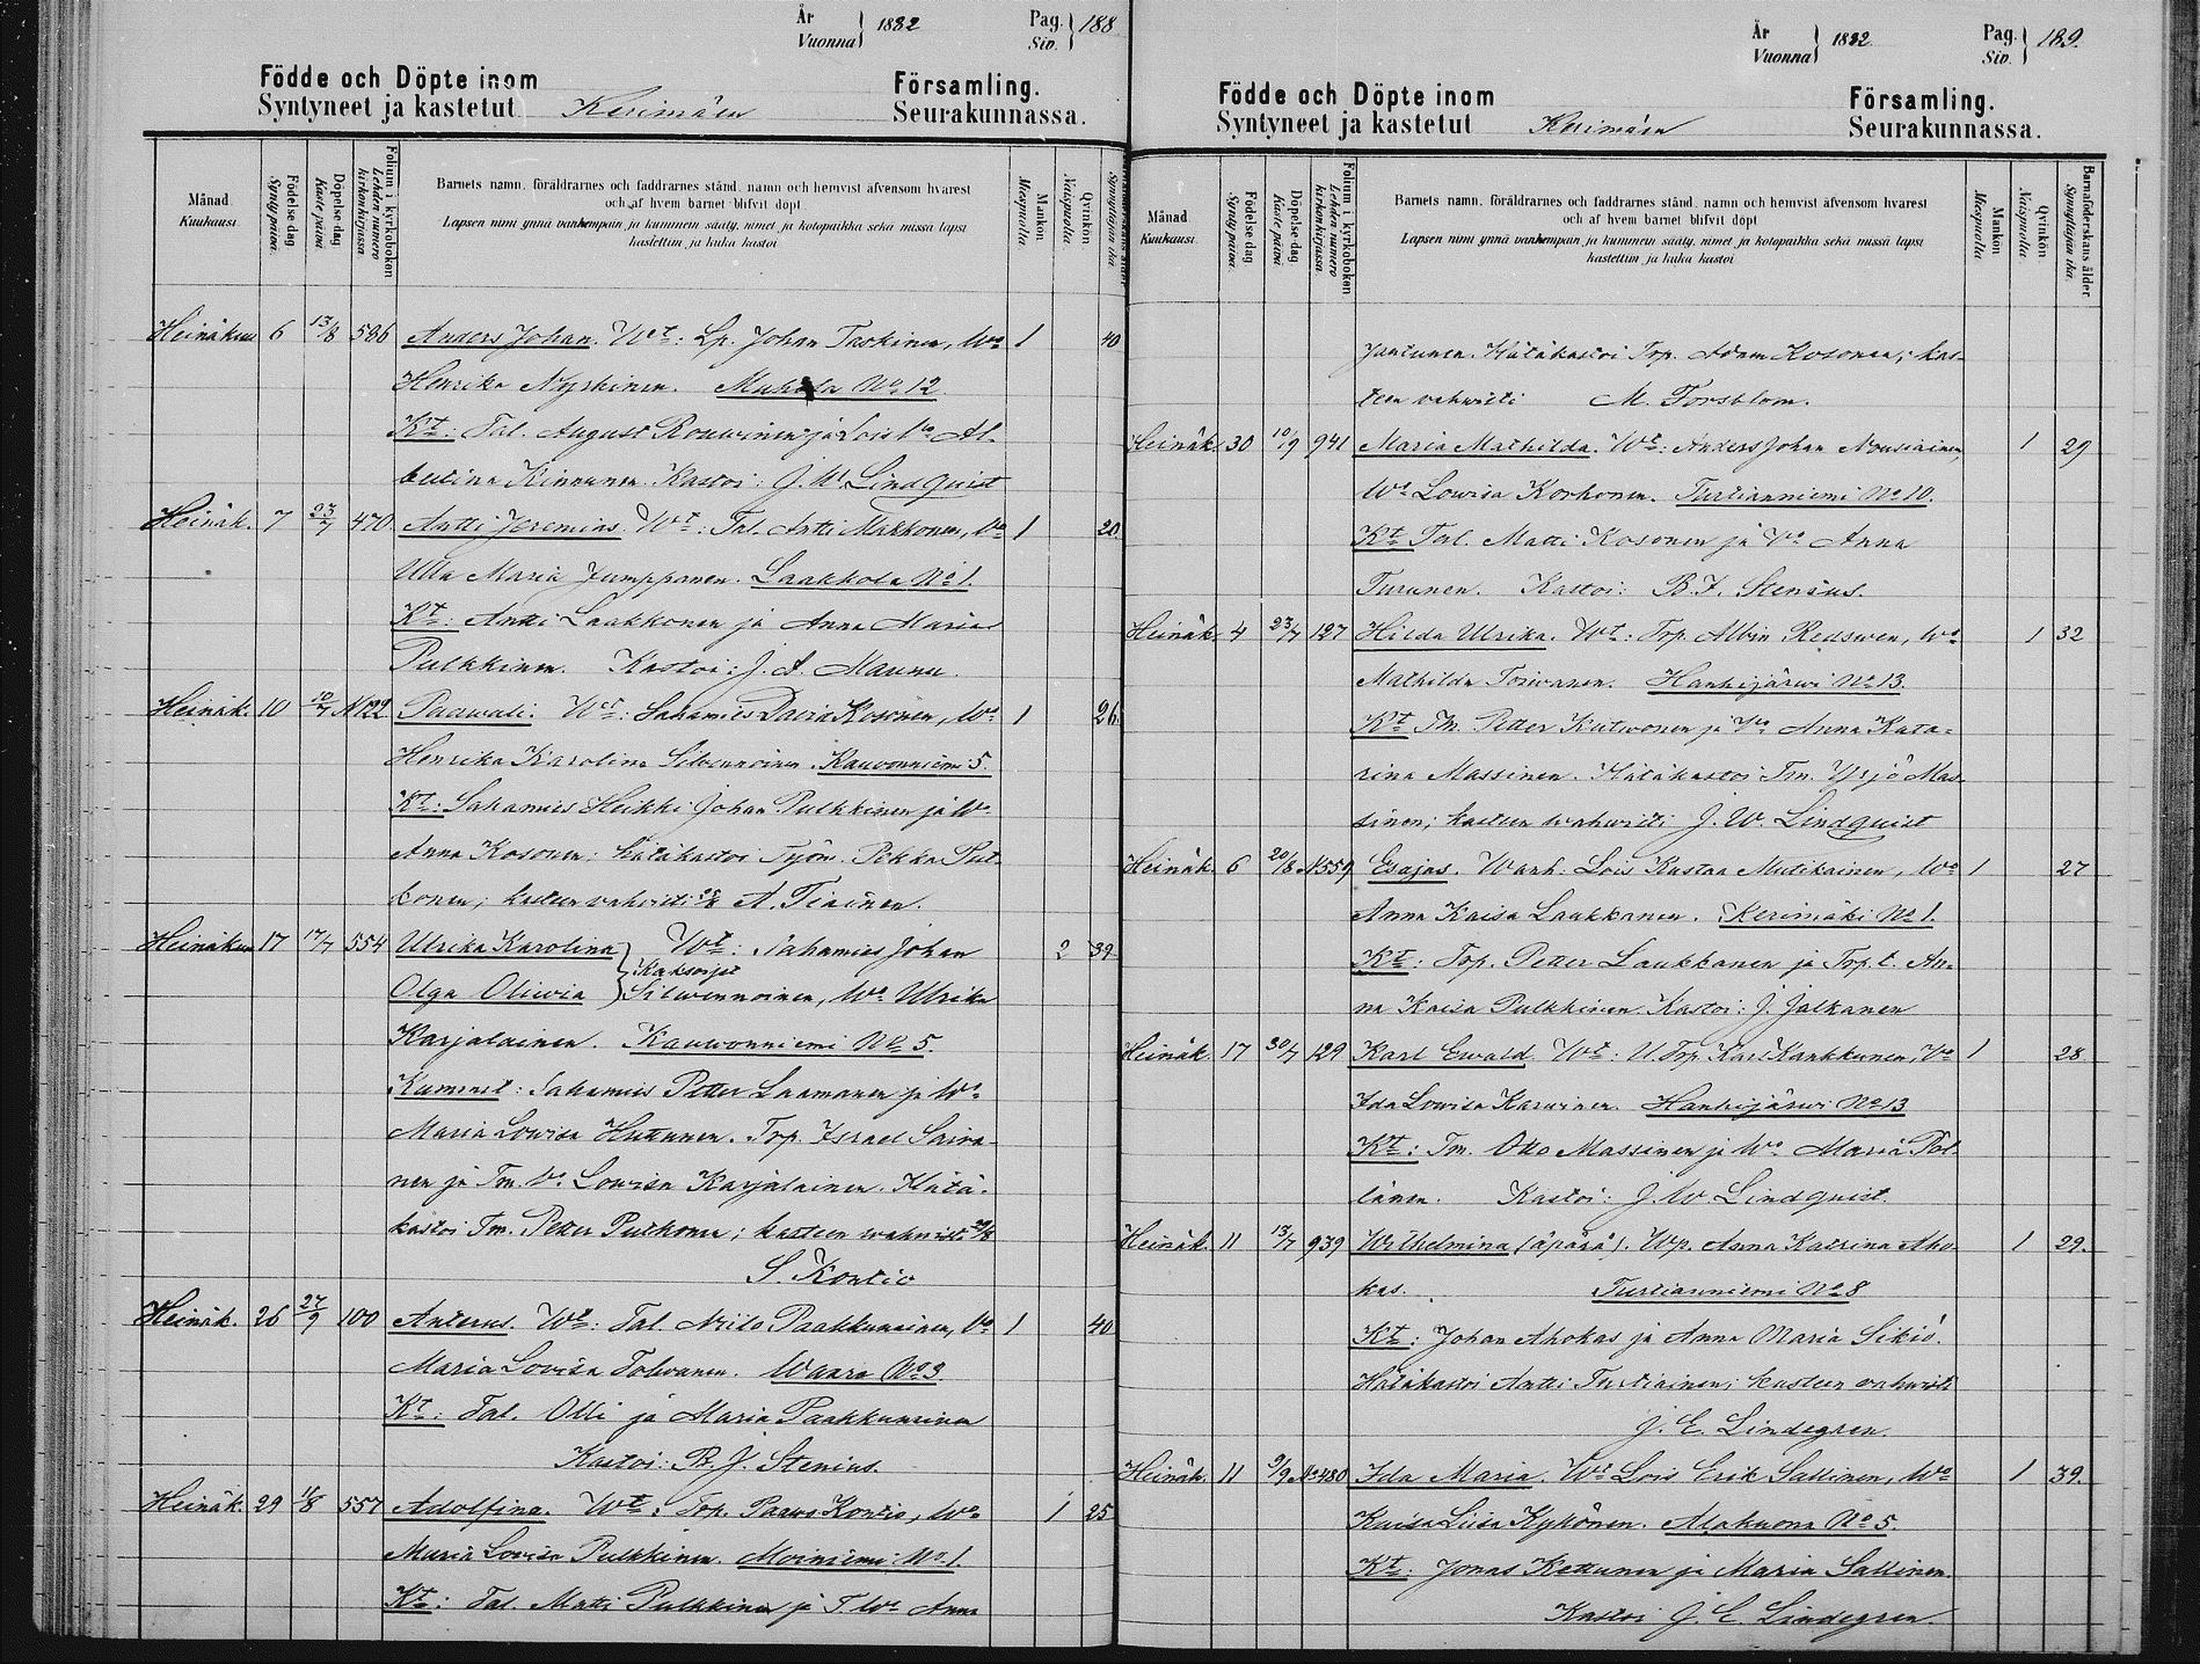 År
Vuonna } 1882 Pag.
Siv. } 188
Födde och Döpte inom Församling.
Syntyneet ja kastetut Kerimäen Seurakunnassa.
Månad
Kuukausi.
Födelse dag
Synty päivä.
Döpelse dag
Kaste päivä
Folium i kyrkoboken
Lehden numero
kirkonkirjassa
Barnets namn, föräldrarnes och faddrarnes stånd, namn och hemvist äfvensom hvarest
och af hvem barnet blifvit döpt
Lapsen nimi ynnä vanhempain ja kummein sääty, nimet ja kotopaikka sekä missä lapsi
kastettiin ja kuka kastoi
Mankön
Miespuolia
Qvinkön
Naispuolia.
Synnyttäjän ikä
Heinäkuu 6 13/8 586 Anders Johan. Wet: Lp. Johan Taskinen, Wo 1 40
Henrika Nyrkinen. Muhola No 12
Kt: Tal. August Rouwinen ja Lois Vo Al-
bertina Kinnunen. Kastoi: J. W. Lindquist
Heinäk. 7 23/7 470 Antti Jeremias. Wt: Tal. Antti Makkonen, Vo 1 20.
Ulla Maria Jumppanen. Laakkola No 1.
Kt: Antti Laakkonen ja Anna Maria
Pulkkinen. Kastoi: J. A. Maunu.
Heinäk. 10 10/7 N 122 Paawali. Wet: Sahamies David Kosonen, Wo 1 26.
Henrika Karolina Silvennoinen. Kauvonniemi 5.
Kt: Sahamies Heikki Johan Pulkkinen ja Wo
Anna Kosonen: hätäkastoi Työm. Pekka Put-
konen; kasteen vahvisti 28/8 A. Tiainen.
Heinäkuu 17 17/7 554 Ulrika Karolina } Wt: Sahamies Johan 2 39
Kaksoiset
Olga Oliwia } Silwennoinen, Wo Ulrika
Karjalainen. Kauwonniemi No 5.
Kummit: Sahamies Petter Laamanen ja Wo
Maria Lowisa Huttunen. Trp. Israel Saira-
nen ja Tm. V. Lowisa Karjalainen. Hätä-
kastoi Tm. Petter Putkonen; kasteen wahwisti 20/8
S. Kontio
Heinäk. 26 27/9 100 Anterus. Wt: Tal. Niilo Paakkunainen, Vo 1 40
Maria Lovisa Tolwanen. Waara No 3.
Kt: Tal. Olli ja Maria Paakkunainen
Kastoi: B. J. Stenius.
Heinäk. 29 11/8 557 Adolfina. Wt: Trp. Paawo Kontio, Wo 1 25
Maria Lovisa Pulkkinen. Moiniemi No 1.
Kt: Tal. Matti Pulkkinen ja T. Wo Anna
År
Vuonna } 1882. Pag.
Siv. } 189.
Födde och Döpte inom Församling.
Syntyneet ja kastetut Kerimäen Seurakunnassa.
Månad
Kuukausi.
Födelse dag
Synty päivä.
Döpelse dag
Kaste päivä.
Folium i kyrkoboken
Lehden numero
kirkonkirjassa.
Barnets namn, föräldrarnes och faddrarnes stånd, namn och hemvist äfvensom hvarest
och af hvem barnet blifvit döpt
Lapsen nimi ynnä vanhempain ja kummein sääty, nimet ja kotopaikka sekä missä lapsi
kastettiin ja kuka kastoi
Mankön
Miespuolia
Qvinkön
Naispuolia
Barnaföderskans ålder
Synnyttäjän ikä
Jantunen. Hätäkastoi Trp. Adam Kosonen; kas-
teen vahwisti M. Forsblom.
Heinäk. 30 10/9 941 Maria Mathilda. Wt: Anders Johan Nousiainen, 1 29
Wo Lowisa Korhonen. Turtianniemi No 10.
Kt Tal. Matti Kosonen ja Vo Anna
Turunen. Kastoi: B. J. Stenius.
Heinäk. 4 23/7 127 Hilda Ulrika. Wt: Trp. Albin Redswen, Wo 1 32
Mathilda Toiwanen. Hanhijärwi No 13.
Kt Tm. Petter Kutwonen ja Vo Anna Kata-
rina Massinen. Hätäkastoi Tm. Yrjö Mas-
sinen; kasteen wahwisti J. W. Lindquist
Heinäk. 6 20/8 N 559 Esajas. Wanh: Lois Kustaa Mutikainen, Wo 1 27
Anna Kaisa Laukkanen. Kerimäki No 1.
Kt: Trp. Petter Laukkanen ja Trp. t. An-
na Kaisa Pulkkinen. Kastoi: J. Jalkanen
Heinäk. 17 30/7 129 Karl Ewald. Wt: U. Trp. Karl Kankkunen, Vo 1 28.
Ida Lowisa Karwinen. Hanhijärwi No 13
Kt: Tm. Otto Massinen ja Wo Maria Pöl-
länen. Kastoi: J. W. Lindquist.
Heinäk. 11 13/7 939 Wilhelmina (äpärä). Wp. Anna Katrina Aho- 1 29.
kas. Turtianniemi No 8
Kt: Johan Ahokas ja Anna Maria Sikiö.
Hätäkastoi Antti Turtiainen; kasteen vahwisti
J. E. Lindegren.
Heinäk. 11 9/9 No 480 Ida Maria. Wt Lois Erik Sallinen, Wo 1 39.
Kaisa Liisa Kykönen. Alakuona No 5.
Kt: Jonas Kettunen ja Maria Sallinen.
Kastoi J. E. Lindegren.